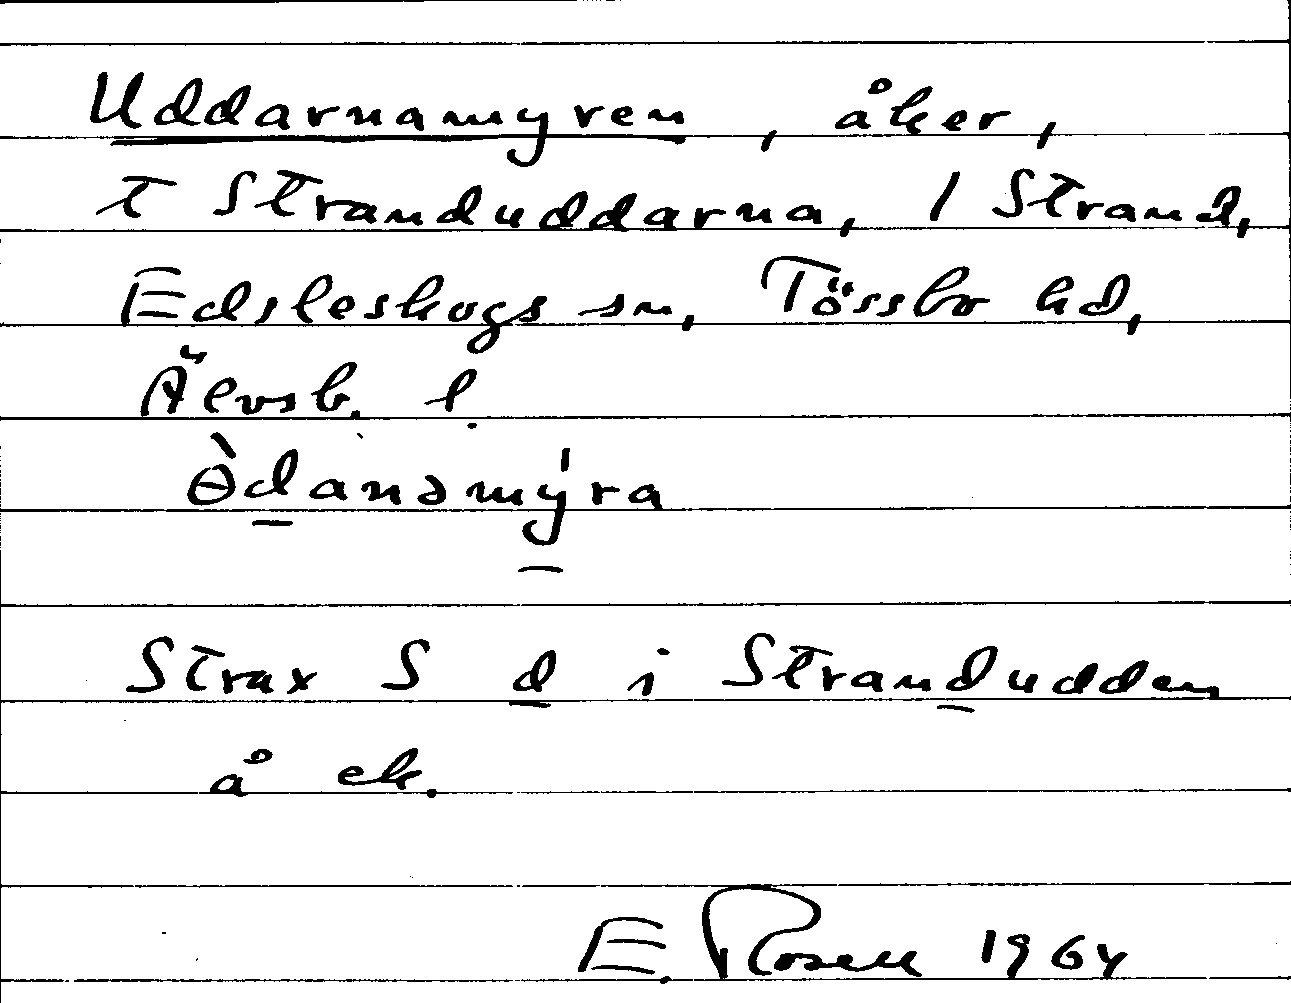 Uddarnamyren, åker,
t Stranduddarna, 1 Strand,
Edsleskogs sn, Tössbo hd,
Älvsb. l.
Ɵ̀d̲anəmý̲ra
Strax S d̲ i Strand̲udden
å ek.
E. Rosell 1964